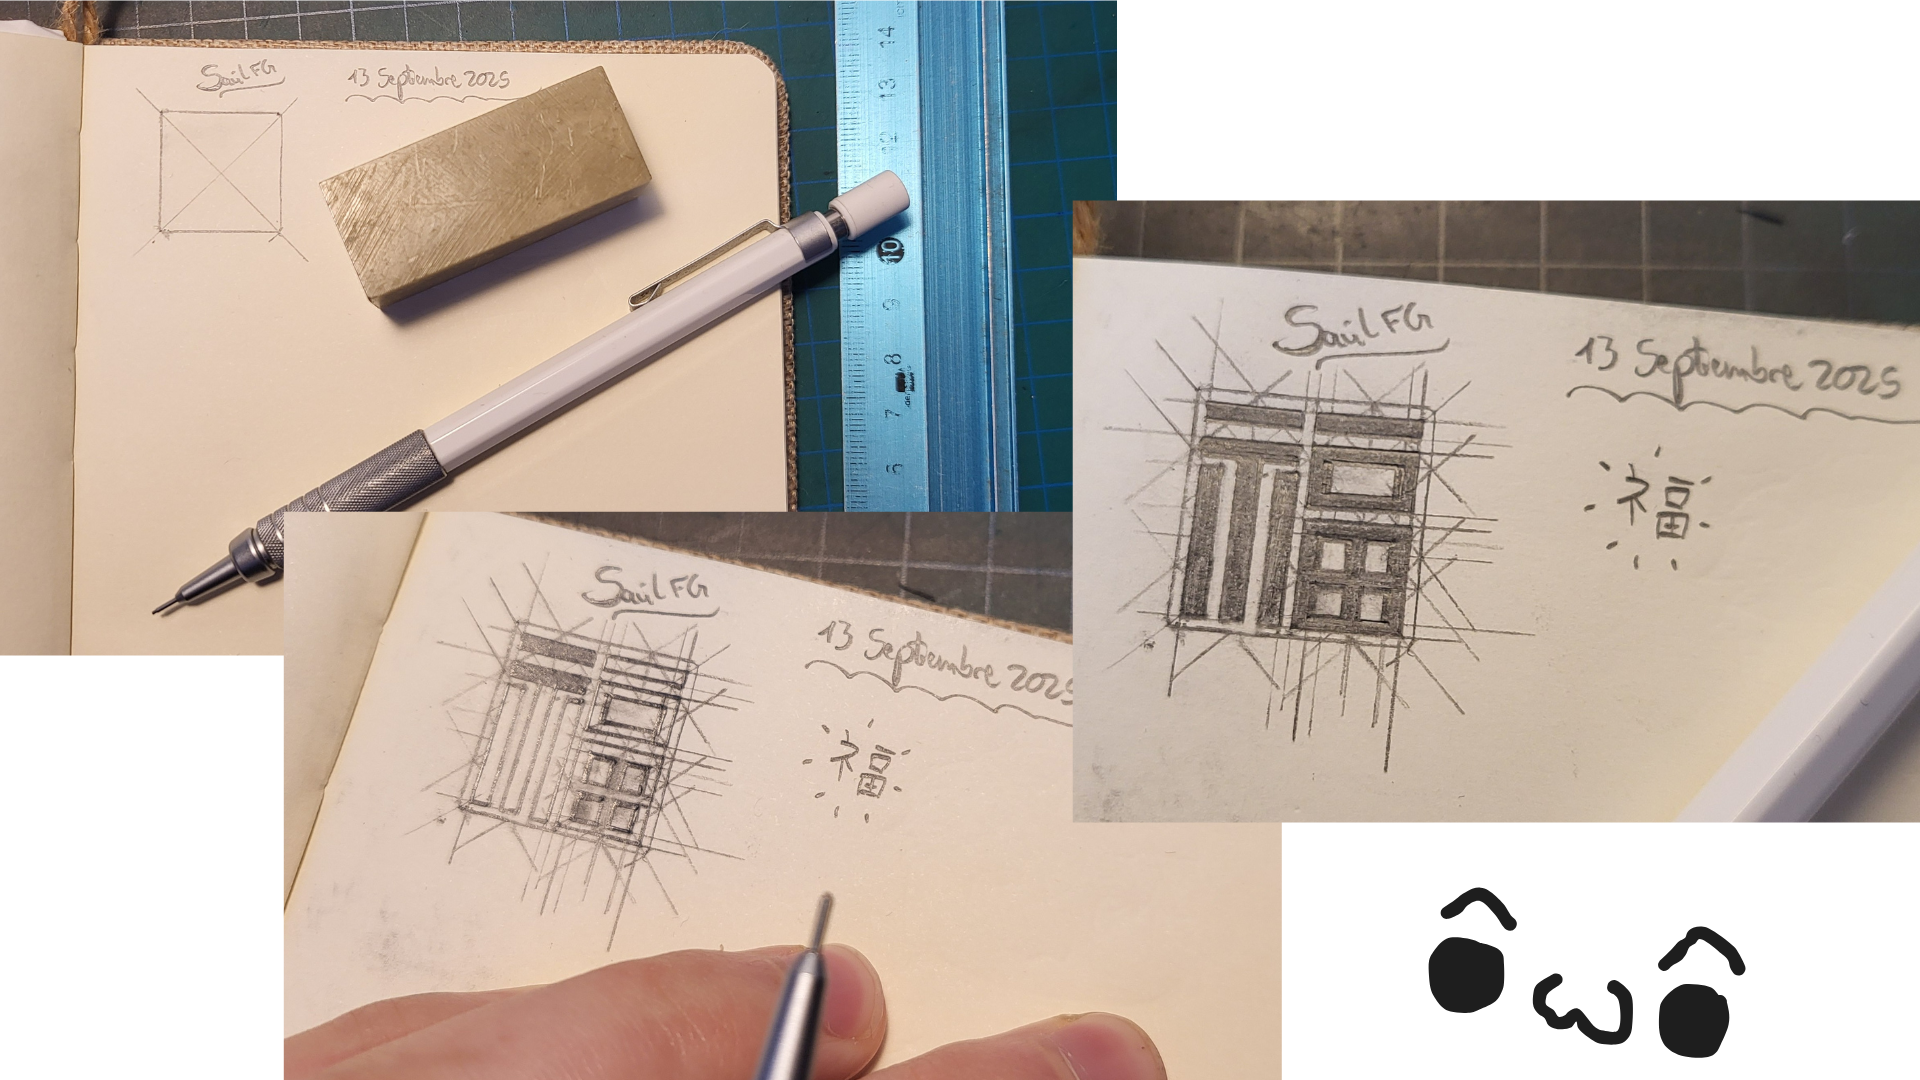 Saúl FG
13 Septiembre 2025
14
13
12
10
9
8
7
Saúl FG
13 Septiembre 2025
福
Saúl FG
13 Septiembre 2025
福